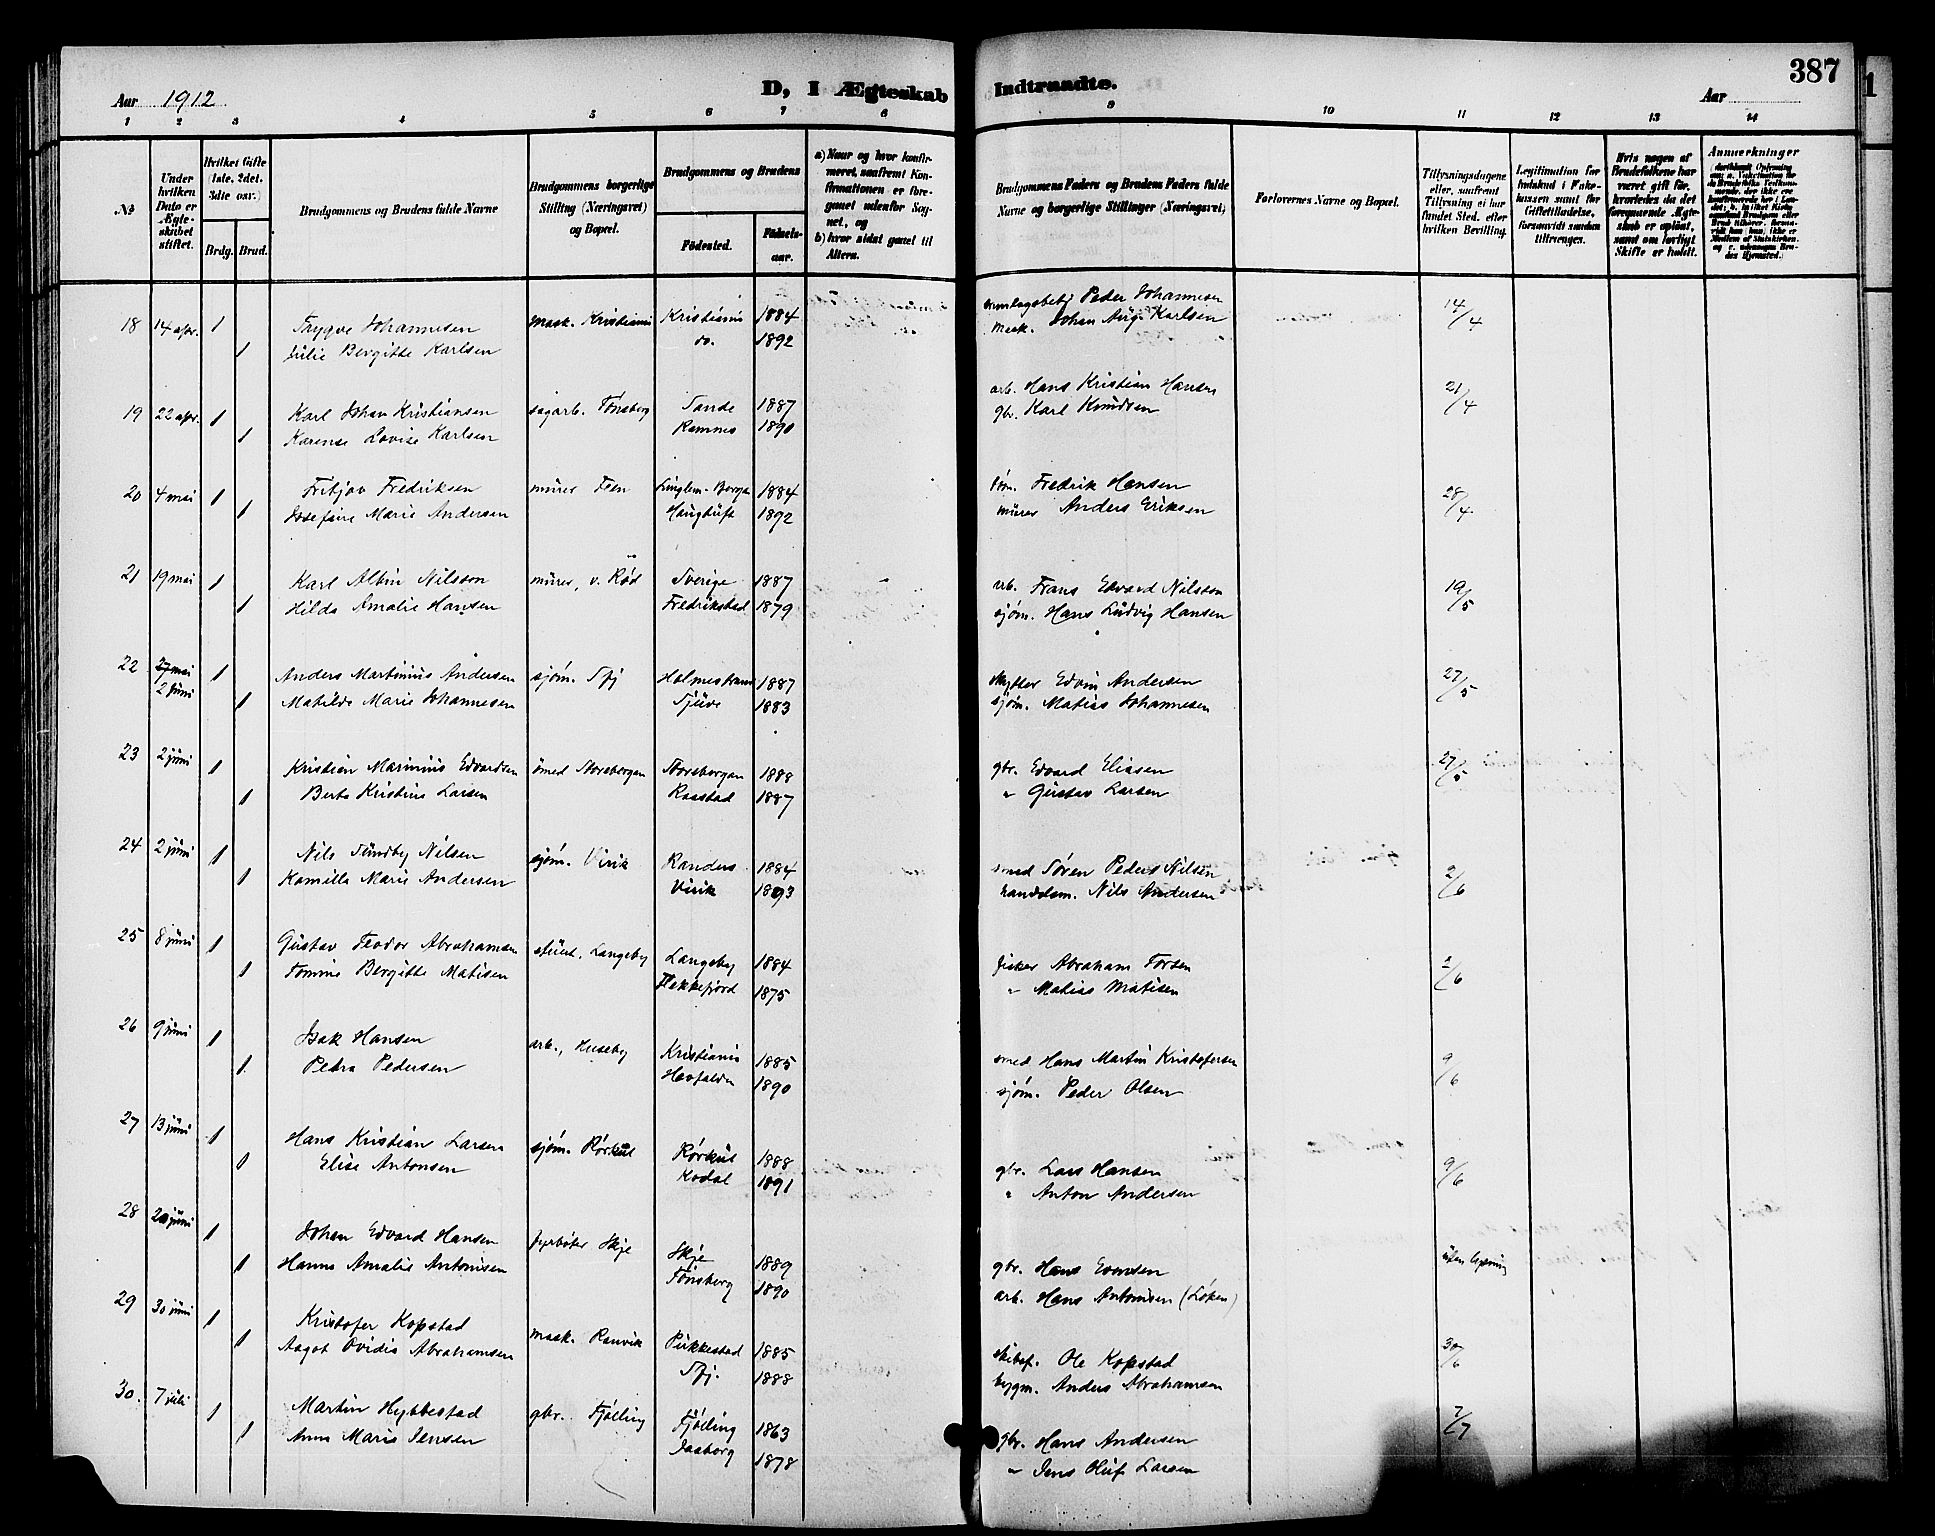 Aar 1912
D, I Ægteskab
Indtraadte.
387
Aar
1 2 3 4 5 6 7 8 9 10 11 12 13 14
No
Under hvilken Dato er Ægteskabet stiftet.
Hvilket Gifte (1ste, 2det, 3die osv.)
Brdg. Brud.
Brudgommens og Brudens fulde Navne
Brudgommens borgerlige Stilling (Næringsvei) og Bopæl.
Brudgommens og Brudens
Fødested.
Fødselsaar.
a) Naar og hvor konfirmeret, saafremt Konfirmationen er foregaaet udenfor Sognet, og
b) hvor sidst gaaet til Alters.
Brudgommens Faders og Brudens Faders fulde Navne og borgerlige Stillinger (Næringsvei)
Forlovernes Navne og Bopæl.
Tillysningsdagene eller, saafremt Tillysning ei har fundet Sted, efter hvilken Bevilling.
Legitimation for Indskud i Enkekassen samt for Giftetilladelse, forsaavidt saadan tiltrænges.
Hvis nogen af Brudefolkene har været gift før, hvorledes da det foregaaende Ægteskab er opløst, samt om lovligt Skifte er holdt.
Anmærkninger
18 14 apr. 1 Trygve Johannesen mask. Kristiania Kristiania 1884 Peder Johannesen 14/4
1 Julie Bergitte Karlsen do. 1892 mask. Johan Aug. Karlsen
19 22 apr. 1 Karl Johan Kristiansen sagarb. Tønsberg Sande 1887 arb. Hans Kristian Hansen 21/4
1 Karense Lovise Karlsen Ramnes 1890 gbr. Karl Knudsen
20 4 mai 1 Fritjov Fredriksen murer Feen 1884 tøm. Fredrik Hansen 28/4
1 Josefine Marie Andersen Haugtuft 1892 murer Anders Eriksen
21 19 mai 1 Karl Albin Nilsson murer, v. Rød Sverige 1887 arb. Frans Edvard Nilsson 19/5
1 Hilda Amalie Hansen Fredrikstad 1879 sjøm. Hans Ludvig Hansen
22 27 mai 1 Anders Martinius Andersen sjøm. Sfj Holmestrand 1887 skytter Edvin Andersen 27/5
2 juni 1 Matilde Marie Johannesen Tjuve 1883 sjøm. Matias Johannesen
23 2 juni 1 Kristian Marinius Edvardsen smed Storebergan Storebergan 1888 gbr. Edvard Eliasen 27/5
1 Berta Kristine Larsen Raastad 1887 " Gustav Larsen
24 2 juni 1 Nils Sundby Nilsen sjøm. Virik Randers 1884 smed Søren Peder Nilsen 2/6
1 Kamilla Marie Andersen Virik 1893 handelsm. Nils Andersen
25 8 juni 1 Gustav Teodor Abrahamsen stuert. Langeby Langeby 1884 fisker Abraham Torsen 2/6
1 Tomine Bergitte Matisen Flekkefjord 1875 " Matias Matisen
26 9 juni 1 Isak Hansen arb., Huseby Kristiania 1885 smed Hans Martin Kristofersen 9/6
1 Petra Pedersen 1890 sjøm. Peder Olsen
27 13 juni 1 Hans Kristian Larsen sjøm. Rørkul Rørkul 1888 gbr. Lars Hansen 9/6
1 Elise Antonsen Kodal 1891 " Anton Andersen
28 20 juni 1 Johan Edvard Hansen fyrbøter Skje Skje 1889 gbr. Hans Evensen uten lysning
1 Hanna Amalie Antonisen Tønsberg 1890 arb. Hans Antonisen (Løken)
29 30 juni 1 Kristofer Kopstad mask. Ranvik Pukkestad 1885 skibsf. Ole Kopstad 30/6
1 Aagot Ovidia Abrahamsen Sfj. 1888 bygm. Anders Abrahamsen
30. 7 juli 1 Martin Hybbestad gbr. Tjølling Tjølling 1863 gbr. Hans Andersen 7/7
1 Anna Marie Jensen Faaborg 1878 " Jens Oluf Larsen